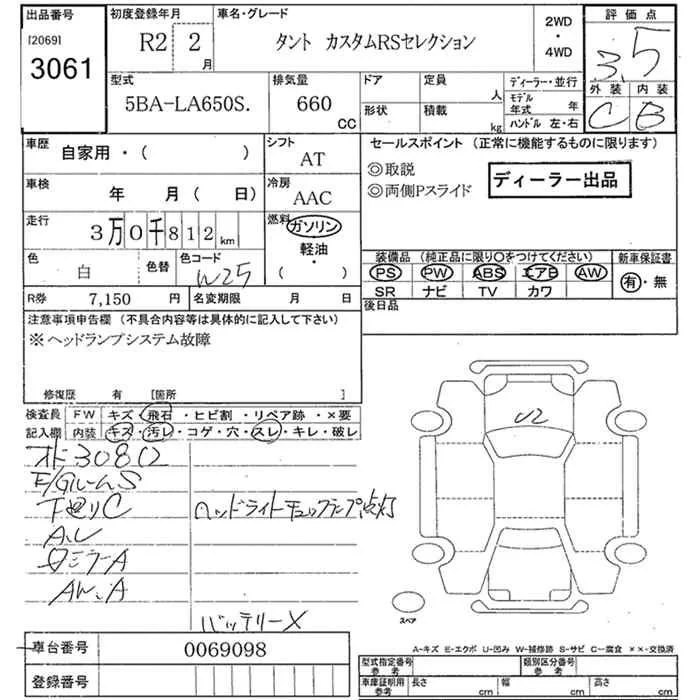 出品番号 初度登録年月 車名・グレード 2WD・4WD 評価点
[2069] 3061 R2 2月 タント カスタムRSセレクション 3.5
型式 排気量 ドア 定員 人 ディーラー・並行 外装 内装
5BA-LA650S. 660 CC 形状 積載 kg モデル年式 年 ハンドル 左・右 C B
車歴 自家用・( ) シフト AT セールスポイント (正常に機能するものに限ります)
◎取説
◎両側Pスライド ディーラー出品
車検 年 月( 日) 冷房 AAC
走行 3万0千812km 燃料 ガソリン 軽油・( )
色 白 色替 色コード W25 装備品 (純正品に限り○をつけてください) 新車保証書
PS PW ABS エアB AW 有・無
SR ナビ TV カワ
R券 7,150円 名変期限 月 日 後日品
注意事項申告欄 (不具合内容等は具体的に記入して下さい)
※ヘッドランプシステム故障
修復歴 有 [箇所 ]
検査員 FW キズ・飛石・ヒビ割・リペア跡・×要
記入欄 内装 キズ・汚レ・コゲ・穴・スレ・キレ・破レ
U2
30812
F/GルームS
下廻りC ヘッドライトチェックランプ点灯
ロミラーA
AW.A
バッテリーX
スペア
A-キズ E-エクボ U-凹み W-補修跡 S-サビ C-腐食 ××-交換済
車台番号 0069098
登録番号
型式指定番号 参考 類別区分番号 参考
車庫証明用 参考 長さ cm 幅 cm 高さ cm